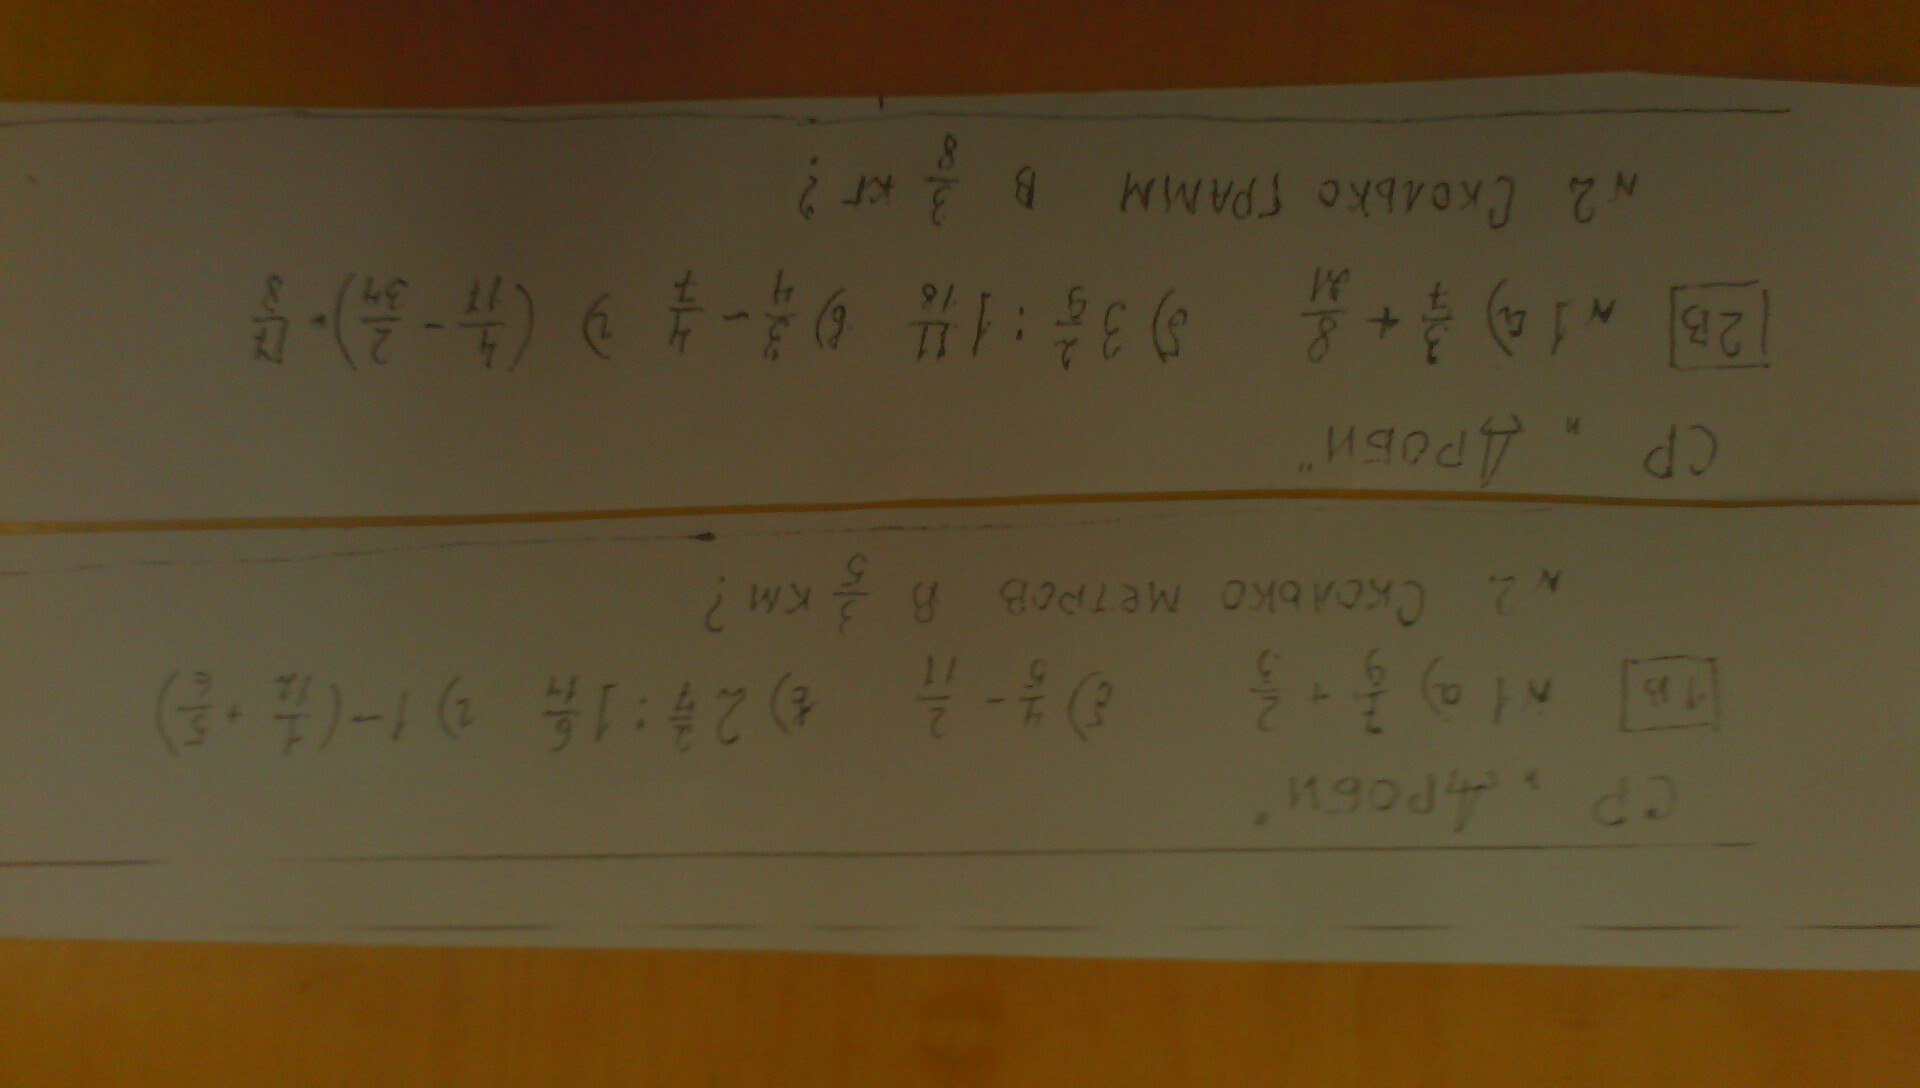 СР „ДРОБИ"
1В №1 а) 7/9 + 2/3 б) 4/5 − 2/11 в) 2 2/7 : 1 6/14 г) 1 − (1/12 + 5/6)
№2 Сколько метров в 3/5 км?
СР „ДРОБИ"
2В №1 а) 3/7 + 8/21 б) 3 2/9 : 1 11/18 в) 3/4 − 4/7 г) (4/17 − 2/34) ·
№2 Сколько грамм в 3/8 кг?